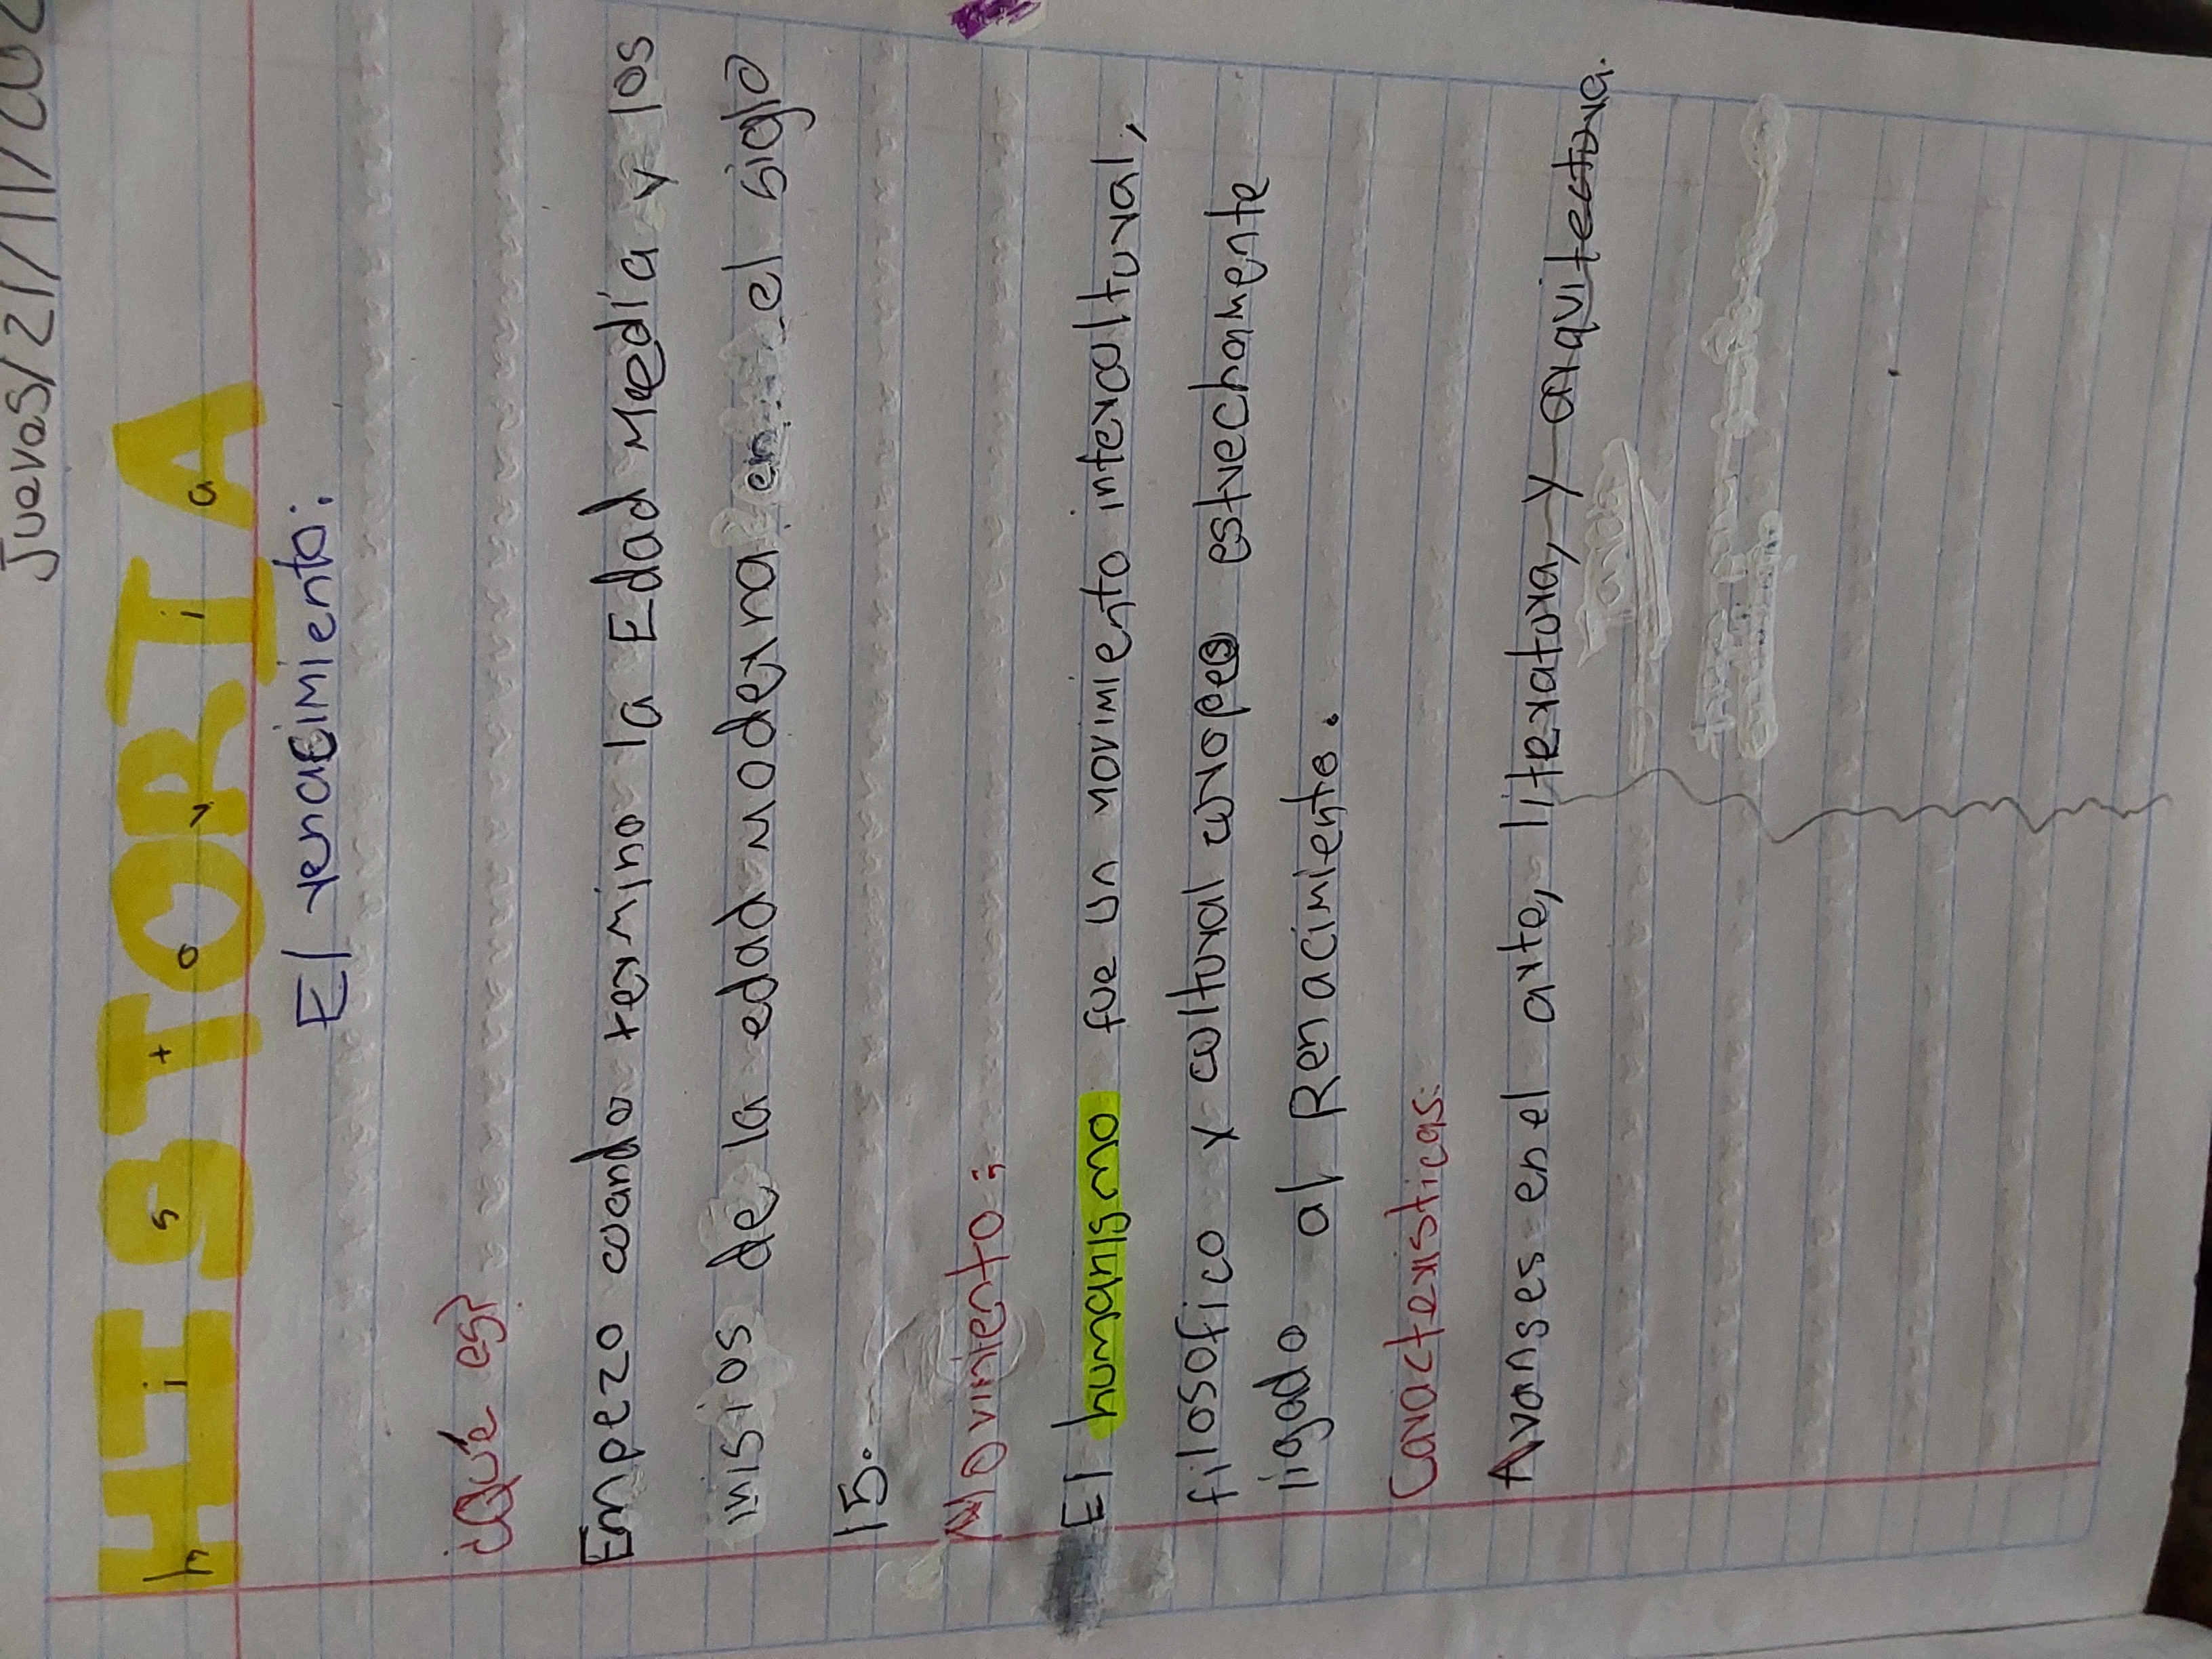 Juevas/21/11/202
HISTORIA
historia
El renacimiento:
¿Qué es?
Empezo cuando termino la Edad Media y los
inisios de la edad moderna en el siglo
15.
Movimiento:
El humanismo fue un movimiento intexcultural,
filosofico y cultural europeo estrechamente
ligado al Renacimiento.
Caracteristicas:
Avanses en el arte, literatura, y arquitectura.